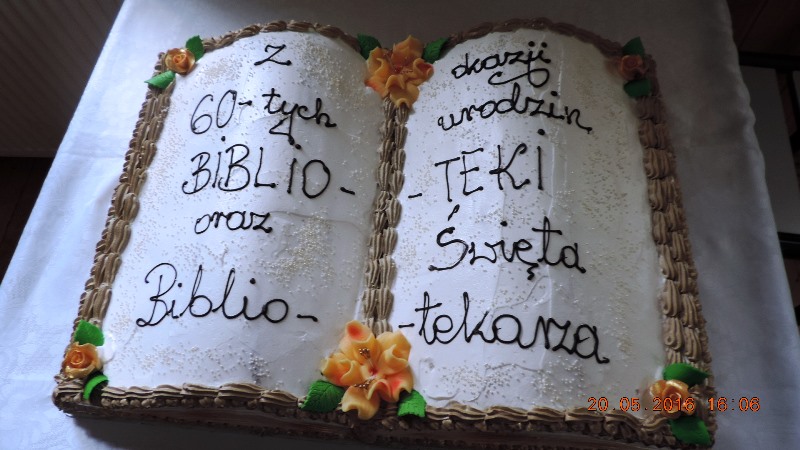 Z okazji
60-tych urodzin
BIBLIO- -TEKI
oraz Święta
Biblio- -tekarza
20.05.2016 16:06